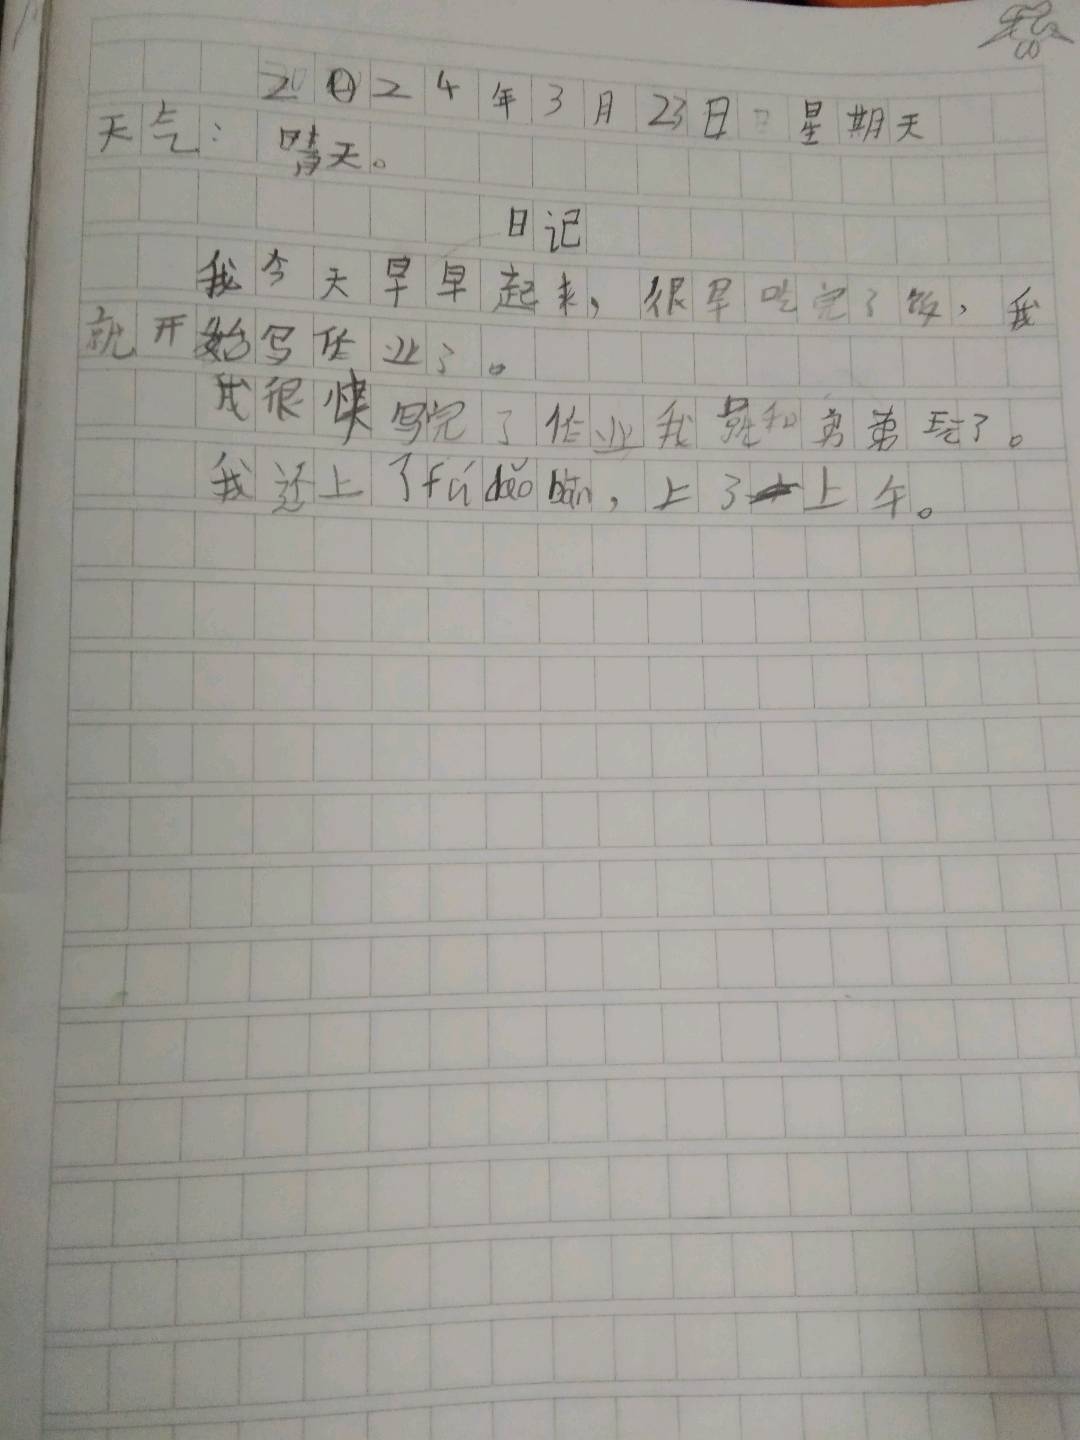 2024年3月23日 星期天
天气：晴天。
日记
我今天早早起来，很早吃完了饭，我
就开始写作业了。
我很快写完了作业我就和弟弟玩了。
我还上了fúdǎobān，上了上午。